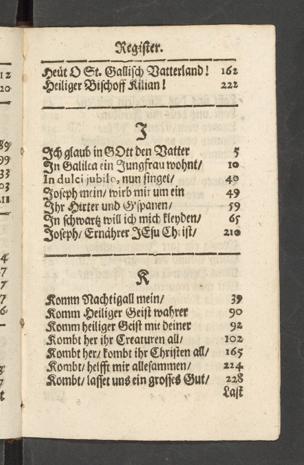 Register.
Heut O St. Gallisch Vatterland! 162
Heiliger Bischoff Kilian! 222
J
Ich glaub in GOtt den Vatter 5
In Galilea ein Jungfrau wohnt/ 10
In dulci jubilo, nun singet/ 40
Joseph mein/ wird mir um ein 49
Ihr Hirter und Gspanen/ 59
In schwartz will ich mich kleyden/ 65
Joseph/ Ernährer JEsu Christ/ 210
K
Komm Nachtigall mein/ 39
Komm Heiliger Geist wahrer 90
Komm heiliger Geist mit deiner 92
Kombt her ihr Creaturen all/ 102
Kombt her/ kombt ihr Christen all/ 165
Kombt/ helfft mir allesammen/ 224
Kombt/ lasset uns ein grosses Gut/ 228
Last